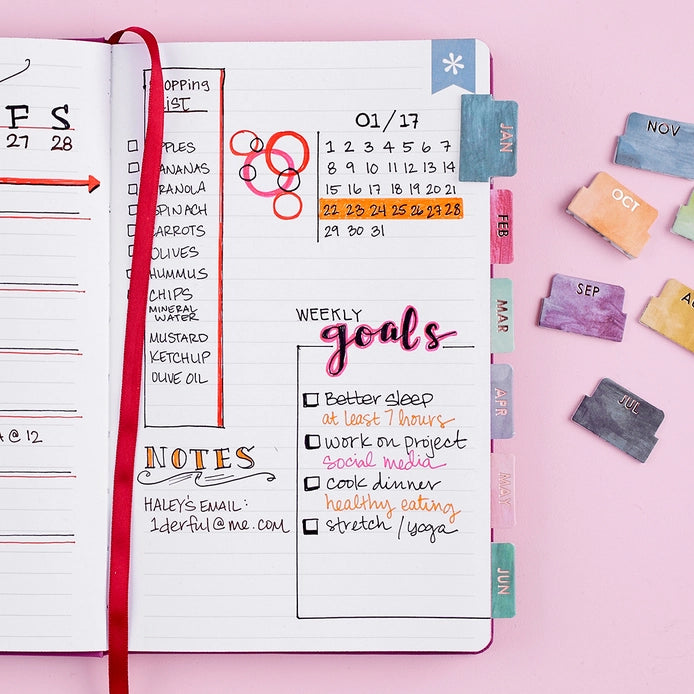 F S
27 28
@ 12
Shopping
List
APPLES
BANANAS
GRANOLA
SPINACH
CARROTS
OLIVES
HUMMUS
CHIPS
MINERAL
WATER
MUSTARD
KETCHUP
OLIVE OIL
NOTES
HALEY'S EMAIL:
1derful@me.com
01/17
1 2 3 4 5 6 7
8 9 10 11 12 13 14
15 16 17 18 19 20 21
22 23 24 25 26 27 28
29 30 31
WEEKLY
goals
Better sleep
at least 7 hours
work on project
social media
cook dinner
healthy eating
stretch / yoga
JAN
FEB
MAR
APR
MAY
JUN
NOV
OCT
SEP
JUL